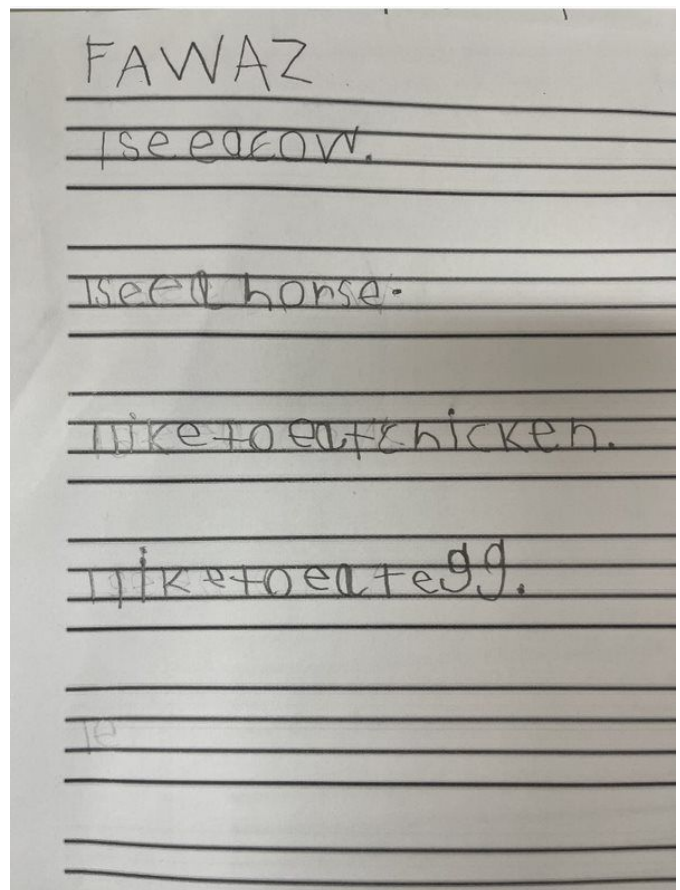 FAWAZ
I see a cow.
I see a horse.
I like to eat chicken.
I like to eat egg.
Ie